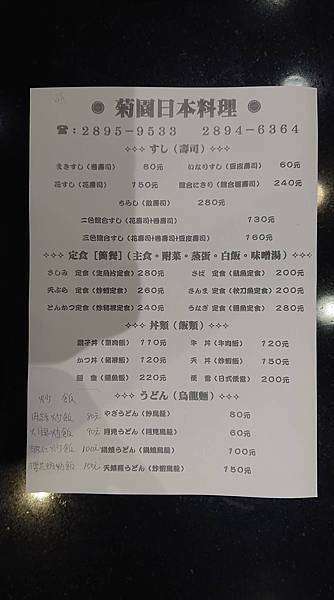 菊園日本料理
☎:2895-9533 2894-6364
すし(壽司)
まきすし(卷壽司) 80元 いなりすし(豆皮壽司) 60元
花すし(花壽司) 150元 綜合にぎり(綜合握壽司) 240元
ちらし(散壽司) 280元
二色綜合すし(花壽司+卷壽司) 130元
三色綜合すし(花壽司+卷壽司+豆皮壽司) 160元
定食[簡餐](主食。附菜。蒸蛋。白飯。味噌湯)
さしみ 定食(生魚片定食)280元 さば 定食(鯖魚定食) 200元
天ぷら 定食(炸蝦定食) 260元 さんま 定食(秋刀魚定食) 200元
とんかつ定食(炸豬排定食) 240元 うなぎ 定食(鰻魚定食) 280元
丼類(飯類)
親子丼(雞肉飯) 110元 牛 丼(牛肉飯) 120元
かつ丼(豬排飯) 120元 天 丼(炸蝦飯) 150元
(鰻魚飯) 220元 便 當(日式便當) 200元
うどん(烏龍麵)
炒 飯
肉絲炒飯 80元 やきうどん(炒烏龍) 80元
炒飯 90元 月見うどん(月見烏龍) 60元
蝦仁炒飯 100元 鍋燒うどん(鍋燒烏龍) 100元
天婦羅うどん(炸蝦烏龍) 150元